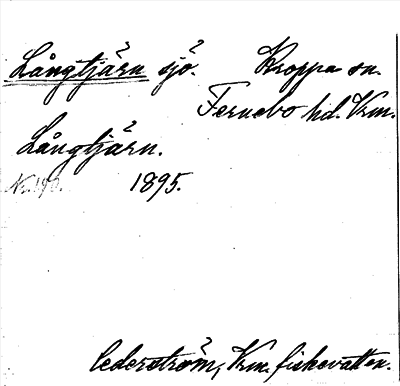 Långtjärn sjö. Kroppa sn.
Fernebo hd. Vrm.
Långtjärn.
Nr. 190. 1895.
Cederström, Vrm. fiskevatten.